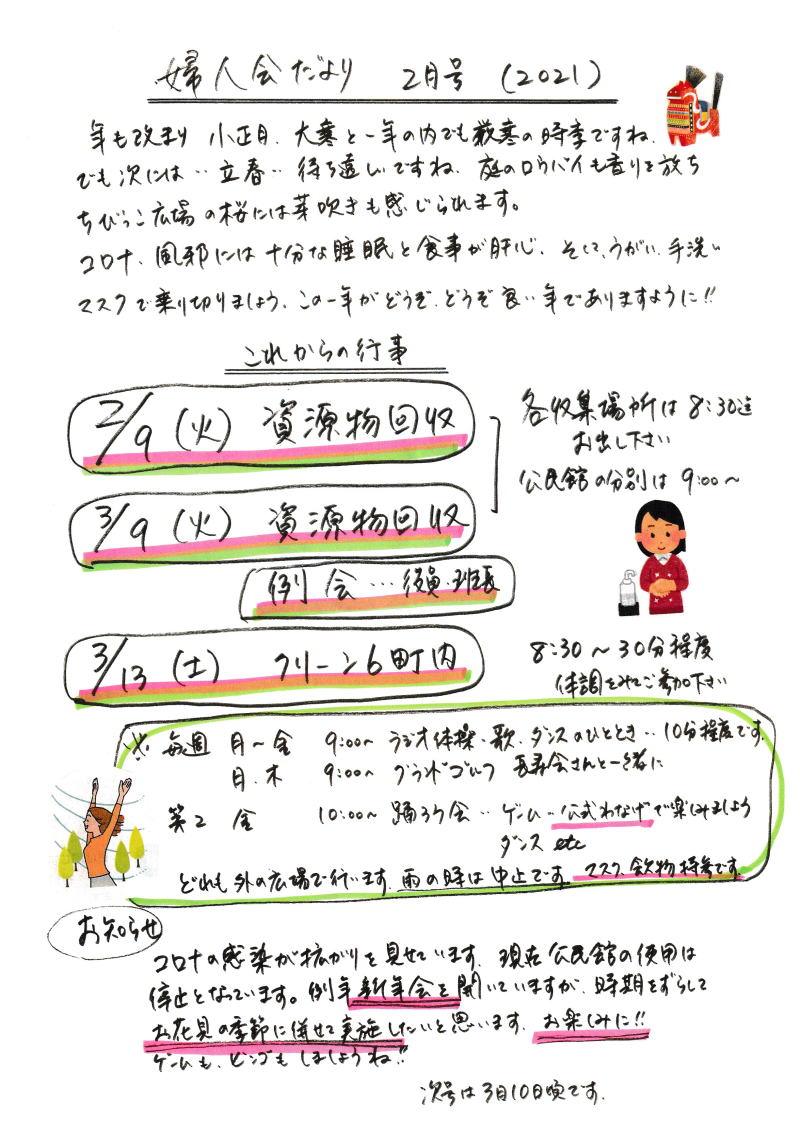 婦人会だより 2月号 (2021)
年も改まり 小正月、大寒と一年の内でも厳寒の時季ですね、
でも次には‥立春‥待ち遠しいですね、庭のロウバイも香りを放ち
ちびっこ広場の桜には芽吹きも感じられます。
コロナ、風邪には十分な睡眠と食事が肝心、そして、うがい、手洗い
マスクで乗り切りましょう、この一年がどうぞ、どうぞ良い年でありますように!!
これからの行事
2/9 (火) 資源物回収
各収集場所は 8:30迄
お出し下さい
公民館の分別は 9:00〜
3/9 (火) 資源物回収
例会…役員・班長
3/13 (土) クリーン6町内
8:30〜30分程度
体調をみてご参加下さい
※ 毎週 月〜金 9:00〜 ラジオ体操・歌、ダンスのひととき‥10分程度です。
月、木 9:00〜 グランドゴルフ 長寿会さんと一緒に
第2 金 10:00〜 踊ろう会‥ゲーム‥公式わなげで楽しみましょう
ダンス etc
どれも外の広場で行います、雨の時は中止です、マスク、飲物持参です。
お知らせ
コロナの感染が拡がりを見せています、現在公民館の使用は
停止となっています。例年新年会を開いていますが、時期をずらして
お花見の季節に併せて実施したいと思います、お楽しみに!!
ゲームも、ビンゴもしましょうね!!
次号は3月10日頃です。